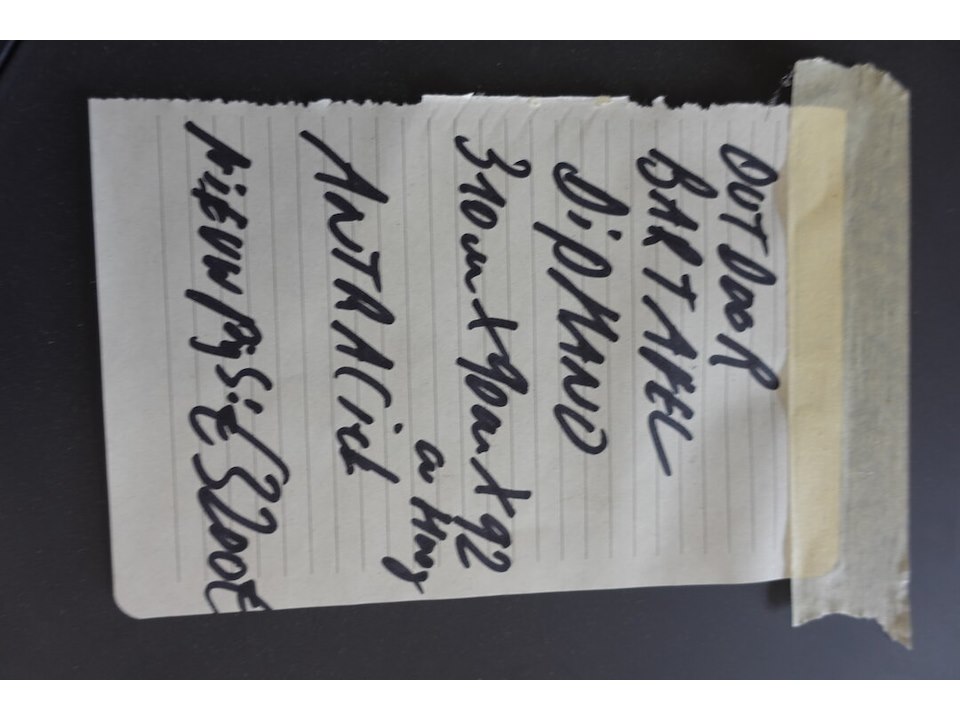 OUTDOOR
BARTAFEL
DiAMAND
310cm X 90cm X 92
cm Hoog
ANTRACiet
NiEUW PRijS: € 3200€